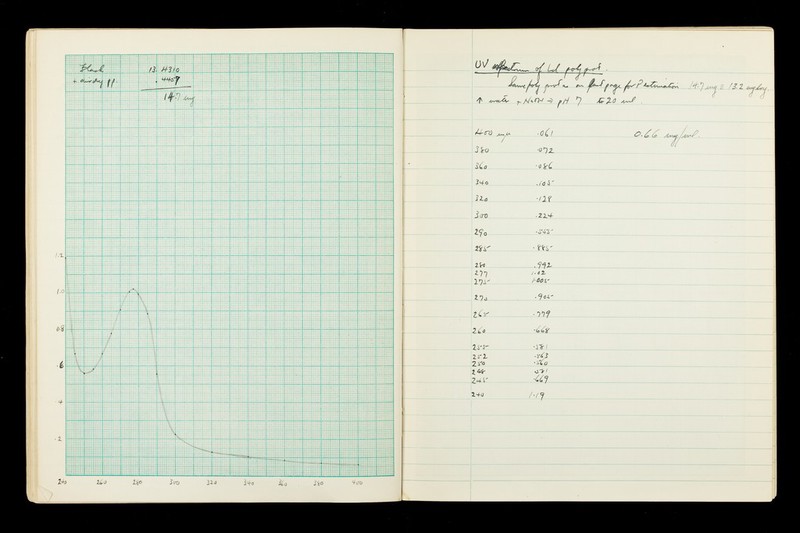 Flask
13. H310
. 4407
147 mg
1.2
1.0
0.8
.6
.4
.2
240 260 280 300 320 340 360 380 400
UV Spectrum of
Same on page for P estimation 14.7 mg = 13.2 mg dry
↑ water + NaOH → pH 7 to 20 ml
400 mµ .061 0.66 mg/ml.
380 .072
360 .086
340 .105
320 .128
300 .224
290
285 .885
280 .992
277 1.02
275 1.005
270 .905
265 .779
260 .668
255 .581
252 .563
250 .560
245 .669
240 1.19